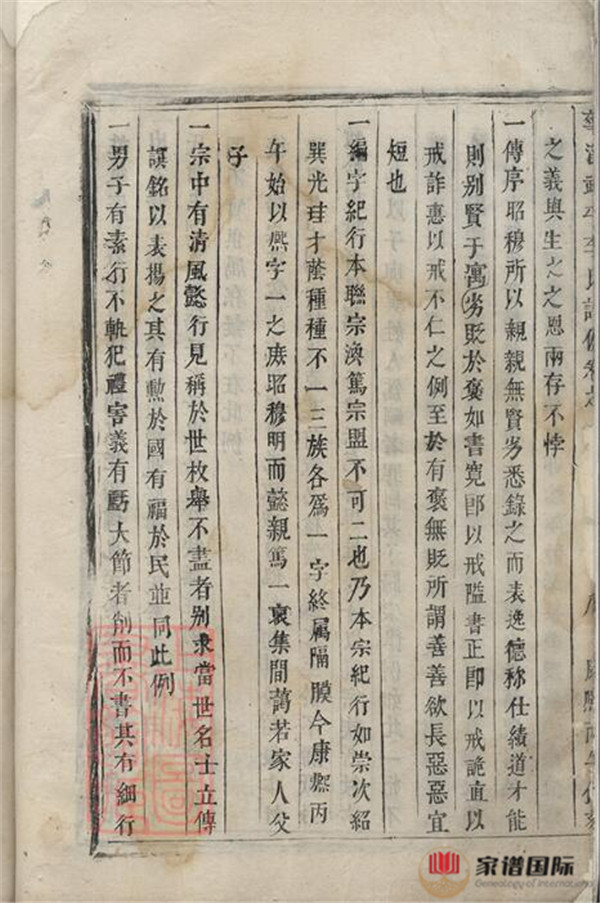 之義與生之之恩兩存不悖
一傳序昭穆所以親親無賢劣悉錄之而表逸德称仕績道才能
則別賢于寓劣貶於褒如書寛卽以戒隘書正卽以戒詭直以
戒詐惠以戒不仁之例至於有褒無貶所謂善善欲長惡惡宜
短也
一編字紀行本聯宗渙篤宗盟不可二也乃本宗紀行如崇次紹
巽光珪才蔭種種不一三族各爲一字終属隔膜今康熈丙
午始以熈字一之庶昭穆明而懿親篤一裒集間藹若家人父
子
一宗中有清風懿行見稱於世枚舉不盡者别求當世名士立傳
譔銘以表揚之其有勲於國有福於民並同此例
一男子有素行不軌犯禮害義有虧大節者削而不書其有細行
家谱国际
Genealogy of International